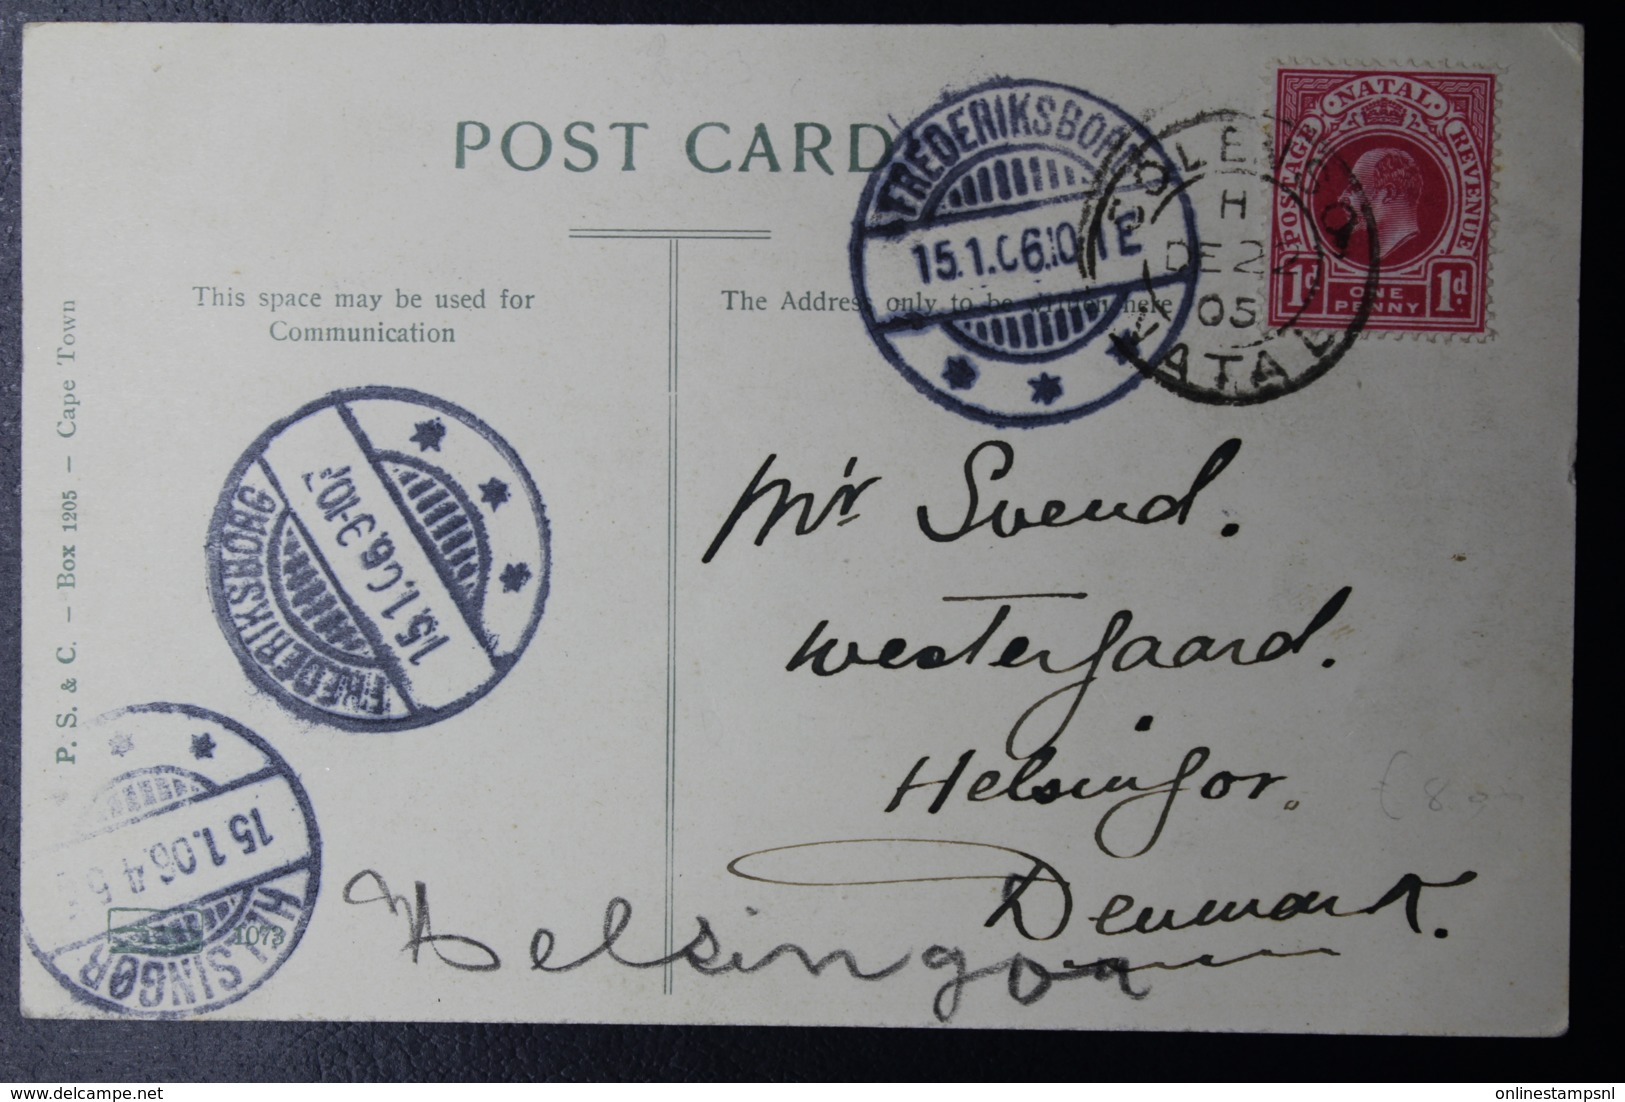 POST CARD
This space may be used for
Communication
The Address only to be written here
P. S. & C. — Box 1205 — Cape Town
FREDERIKSBORG
15.1.06.10 TE
COLENSO
H
DE 22
05
NATAL
NATAL
POSTAGE
REVENUE
1d
ONE
PENNY
1d.
FREDERIKSBORG
15.1.06.
HELSINGØR
15.1.06.4
1073
Mr Svend.
Westergaard.
Helsingfor.
Denmark.
Helsingör
onlinestampsnl